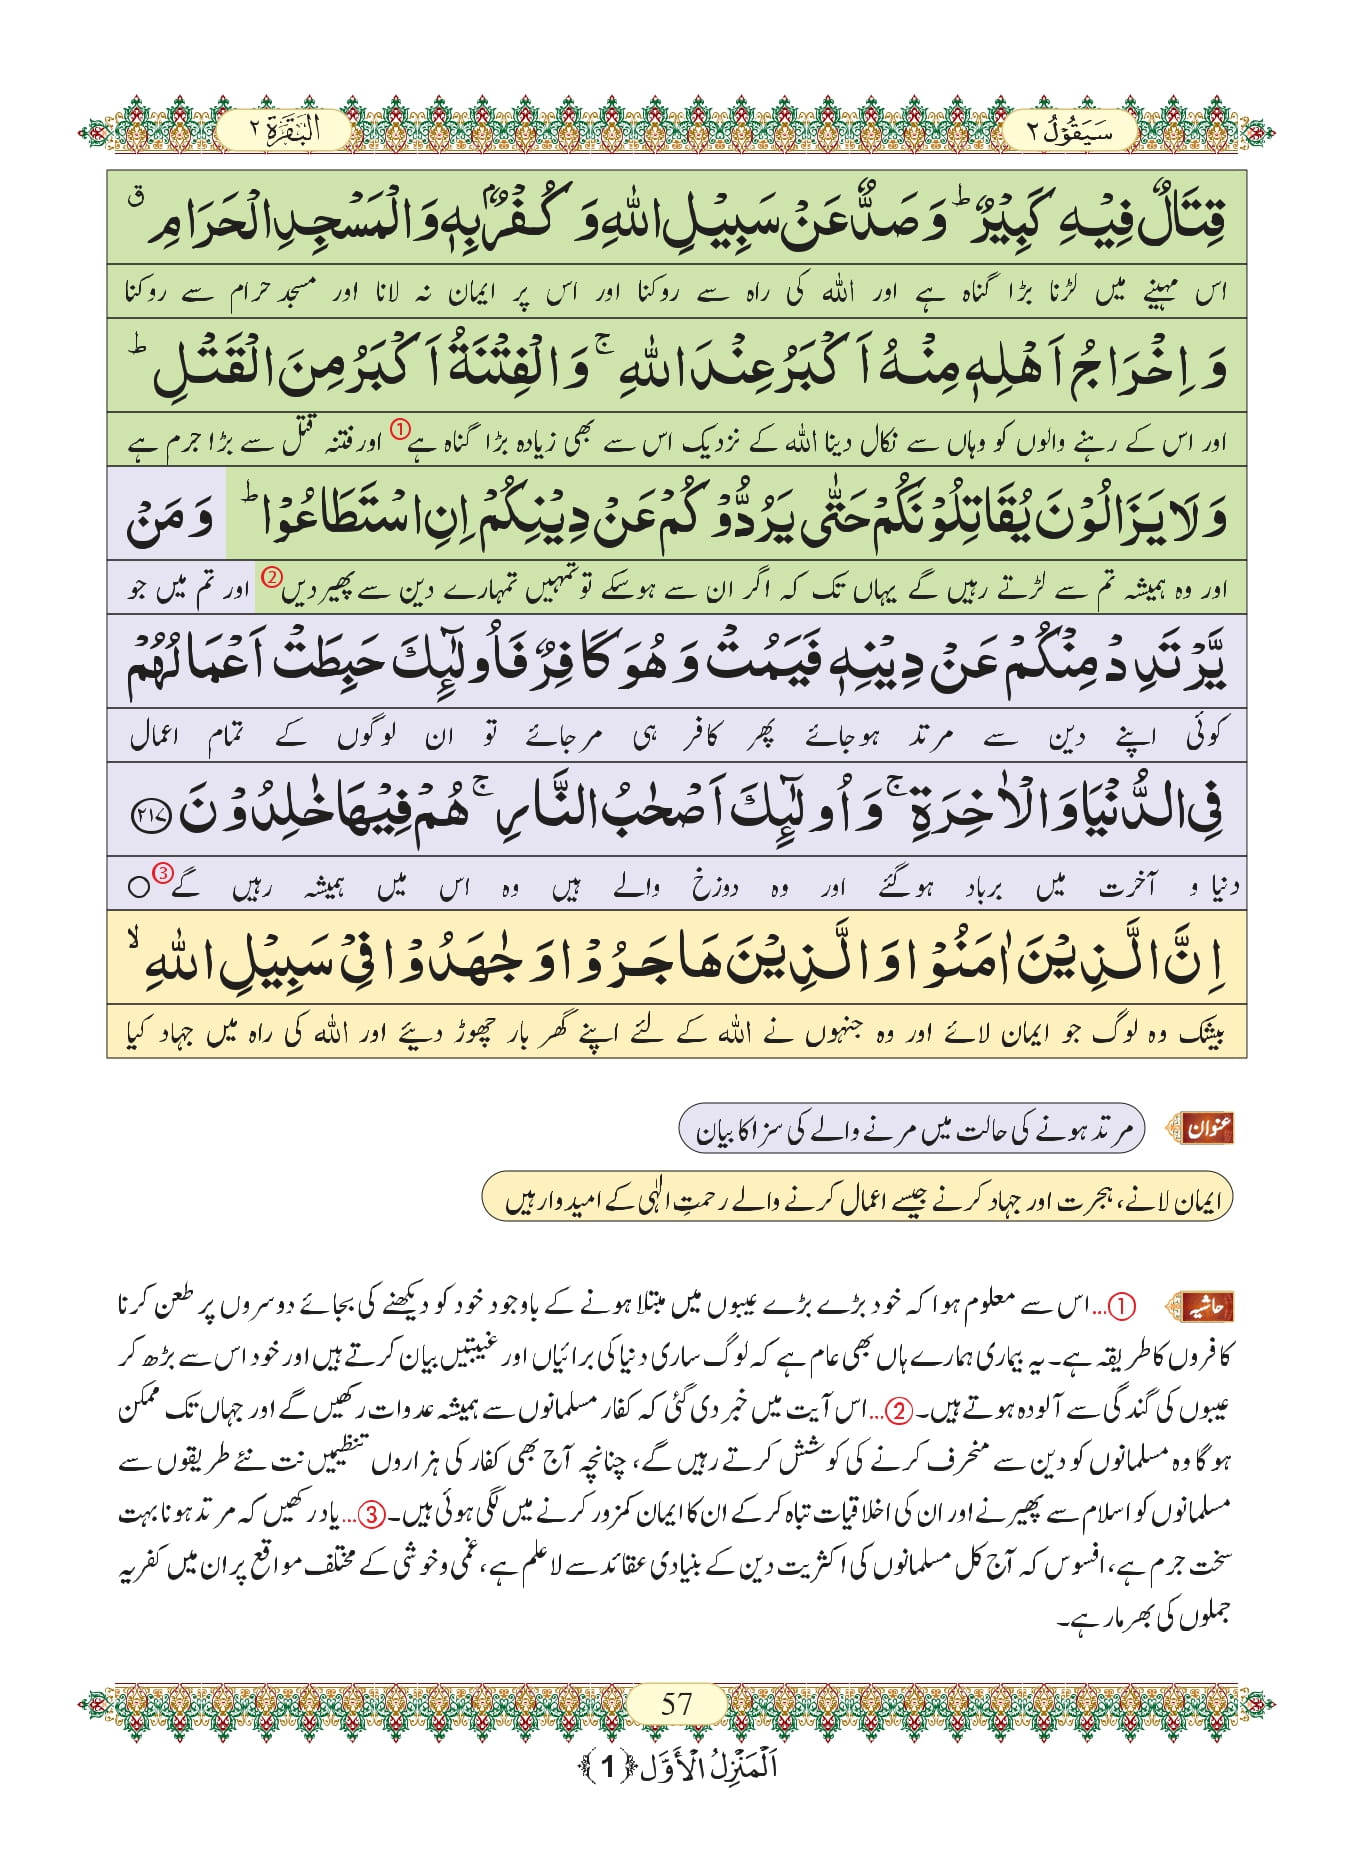 سَيَقُوْلُ ٢
البَقَرَة ٢
قِتَالٌ فِيْهِ كَبِيْرٌ ؕ وَ صَدٌّ عَنْ سَبِيْلِ اللهِ وَ كُفْرٌۢ بِهٖ وَ الْمَسْجِدِ الْحَرَامِ ۗ
اس مہینے میں لڑنا بڑا گناہ ہے اور اللہ کی راہ سے روکنا اور اس پر ایمان نہ لانا اور مسجد حرام سے روکنا
وَ اِخْرَاجُ اَهْلِهٖ مِنْهُ اَكْبَرُ عِنْدَ اللهِ ۚ وَ الْفِتْنَةُ اَكْبَرُ مِنَ الْقَتْلِ ؕ
اور اس کے رہنے والوں کو وہاں سے نکال دینا اللہ کے نزدیک اس سے بھی زیادہ بڑا گناہ ہے ① اور فتنہ قتل سے بڑا جرم ہے
وَ لَا يَزَالُوْنَ يُقَاتِلُوْنَكُمْ حَتّٰى يَرُدُّوْكُمْ عَنْ دِيْنِكُمْ اِنِ اسْتَطَاعُوْا ؕ وَ مَنْ
اور وہ ہمیشہ تم سے لڑتے رہیں گے یہاں تک کہ اگر ان سے ہوسکے تو تمہیں تمہارے دین سے پھیردیں ② اور تم میں جو
يَّرْتَدِدْ مِنْكُمْ عَنْ دِيْنِهٖ فَيَمُتْ وَ هُوَ كَافِرٌ فَاُولٰٓىِٕكَ حَبِطَتْ اَعْمَالُهُمْ
کوئی اپنے دین سے مرتد ہوجائے پھر کافر ہی مرجائے تو ان لوگوں کے تمام اعمال
فِي الدُّنْيَا وَ الْاٰخِرَةِ ۚ وَ اُولٰٓىِٕكَ اَصْحٰبُ النَّارِ ۚ هُمْ فِيْهَا خٰلِدُوْنَ ﴿٢١٧﴾
دنیا و آخرت میں برباد ہوگئے اور وہ دوزخ والے ہیں وہ اس میں ہمیشہ رہیں گے ③ ○
اِنَّ الَّذِيْنَ اٰمَنُوْا وَ الَّذِيْنَ هَاجَرُوْا وَ جٰهَدُوْا فِيْ سَبِيْلِ اللهِ ۙ
بیشک وہ لوگ جو ایمان لائے اور وہ جنہوں نے اللہ کے لئے اپنے گھر بار چھوڑ دیئے اور اللہ کی راہ میں جہاد کیا
عنوان مرتد ہونے کی حالت میں مرنے والے کی سزا کا بیان
ایمان لانے، ہجرت اور جہاد کرنے جیسے اعمال کرنے والے رحمتِ الٰہی کے امیدوار ہیں
حاشیہ ①...اس سے معلوم ہوا کہ خود بڑے بڑے عیبوں میں مبتلا ہونے کے باوجود خود کو دیکھنے کی بجائے دوسروں پر طعن کرنا
کافروں کا طریقہ ہے۔ یہ بیماری ہمارے ہاں بھی عام ہے کہ لوگ ساری دنیا کی برائیاں اور غیبتیں بیان کرتے ہیں اور خود اس سے بڑھ کر
عیبوں کی گندگی سے آلودہ ہوتے ہیں۔ ②...اس آیت میں خبر دی گئی کہ کفار مسلمانوں سے ہمیشہ عدوات رکھیں گے اور جہاں تک ممکن
ہوگا وہ مسلمانوں کو دین سے منحرف کرنے کی کوشش کرتے رہیں گے، چنانچہ آج بھی کفار کی ہزاروں تنظیمیں نت نئے طریقوں سے
مسلمانوں کو اسلام سے پھیرنے اور ان کی اخلاقیات تباہ کرکے ان کا ایمان کمزور کرنے میں لگی ہوئی ہیں۔ ③...یاد رکھیں کہ مرتد ہونا بہت
سخت جرم ہے، افسوس کہ آج کل مسلمانوں کی اکثریت دین کے بنیادی عقائد سے لاعلم ہے، غمی و خوشی کے مختلف مواقع پر ان میں کفریہ
جملوں کی بھرمار ہے۔
57
اَلْمَنْزِلُ الْأَوَّل ﴿1﴾